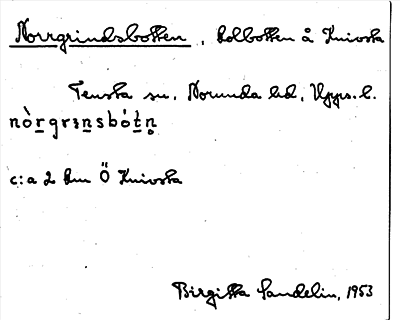 Norrgrindsbotten, kolbotten å Knivsta
Tensta sn, Norunda hd, Upps. l.
nòrgrɪnsbótn̥
c:a 2 km Ö Knivsta
Birgitta Sandelin, 1953